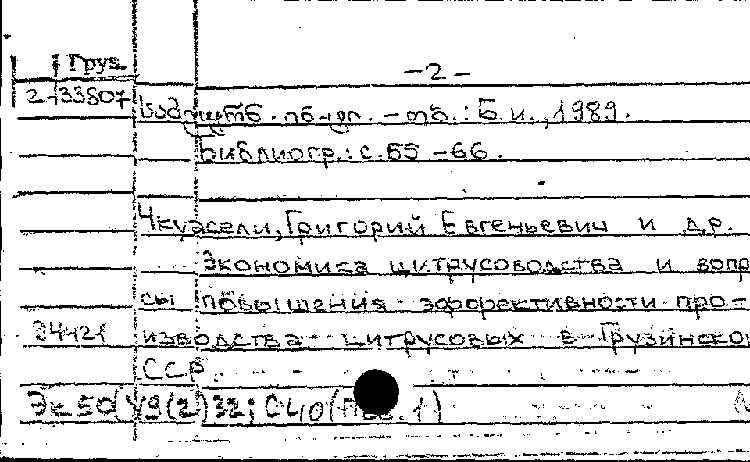 Груз. -2-
2-33807
Б.и., 1989.
Библиогр.: с. 65-66.
Чкуасели, Григорий Евгеньевич и др.
Экономика цитрусоводства и вопр
сы повышения эффективности про-
34421 изводства цитрусовых в Грузинско
ССР.
Эк50(У9(2)32; СЦ10(